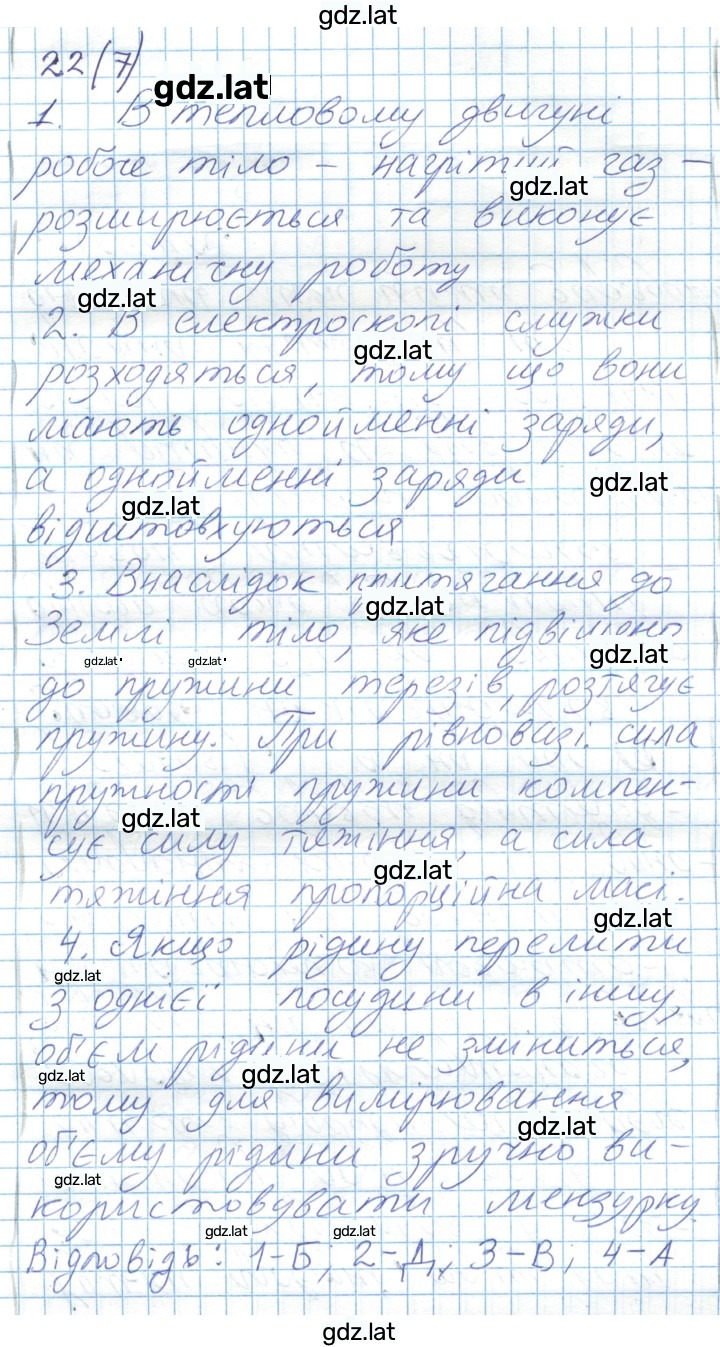 gdz.lat
22(7)
gdz.lat
1. В тепловому двигуні
робоче тіло – нагрітий газ –
gdz.lat
розширюється та виконує
механічну роботу
gdz.lat
2. В електроскопі смужки
gdz.lat
розходяться, тому що вони
мають однойменні заряди,
а однойменні заряди
gdz.lat
gdz.lat
відштовхуються
3. Внаслідок притягання до
gdz.lat
Землі тіло, яке підвішено
gdz.lat
gdz.lat gdz.lat
до пружини терезів, розтягує
пружину. При рівновазі сила
пружності пружини компен-
gdz.lat
сує силу тяжіння, а сила
gdz.lat
тяжіння пропорційна масі.
gdz.lat
4. Якщо рідину перелити
gdz.lat
з однієї посудини в іншу,
об'єм рідини не зміниться,
gdz.lat gdz.lat
тому для вимірювання
gdz.lat
об'єму рідини зручно ви-
gdz.lat
користовувати мензурку
gdz.lat gdz.lat
Відповідь: 1-Б; 2-Д; 3-В; 4-А
gdz.lat